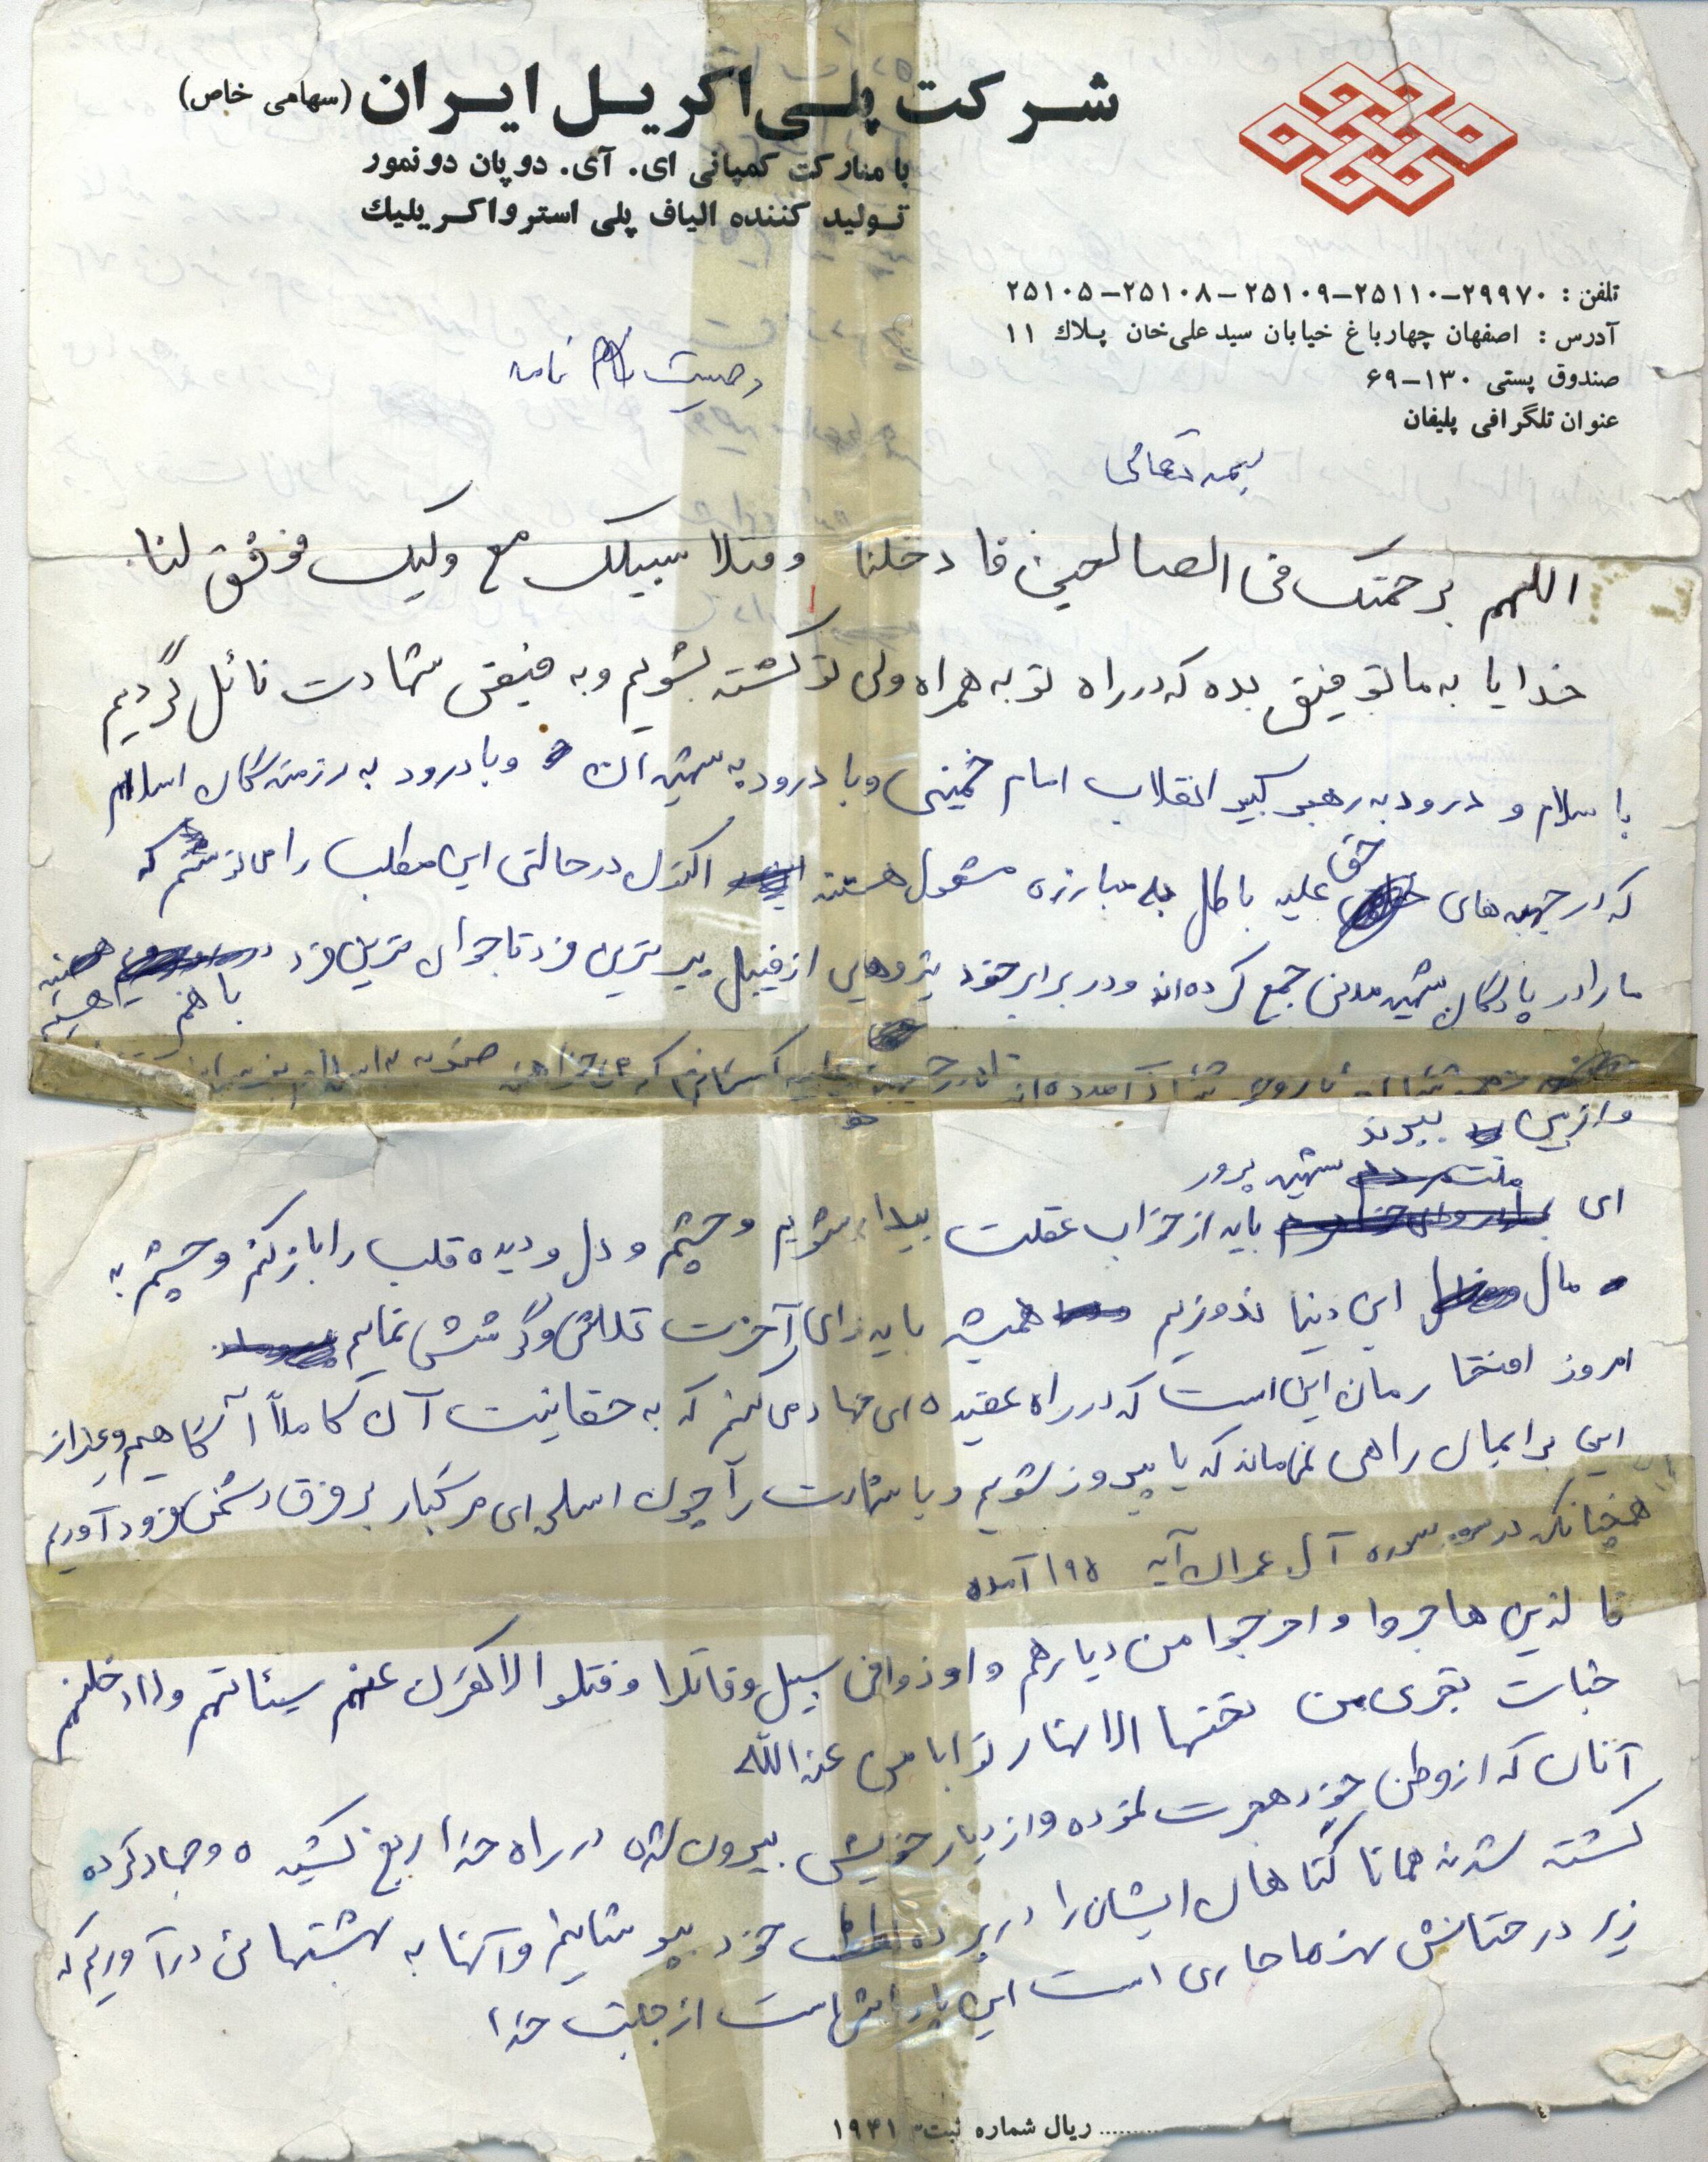 شرکت پلی اکریل ایران (سهامی خاص)
با مشارکت کمپانی ای. آی. دوپان دونمور
تولید کننده الیاف پلی استر واکریلیك
تلفن : ۲۹۹۷۰-۲۵۱۱۰-۲۵۱۰۹-۲۵۱۰۸-۲۵۱۰۵
آدرس : اصفهان چهارباغ خیابان سیدعلی‌خان پلاك ۱۱
صندوق پستی ۱۳۰-۶۹
عنوان تلگرافی پلیفان
وصیت نامه
بسمه تعالی
اللهم برحمتک فی الصالحین فادخلنا وقتلا سبیلک مع ولیک فوفق لنا.
خدایا به ما توفیق بده که در راه تو به همراه ولی تو کشته بشویم و به فیض شهادت نائل گردیم
با سلام و درود به رهبر کبیر انقلاب امام خمینی و با درود به شهیدان و با درود به رزمندگان اسلام
که در جبهه‌های حق علیه باطل به مبارزه مشغول هستند اکنون در حالتی این مطلب را می‌نویسم که
ما را در پادگان شهید مدنی جمع کرده‌اند و در برابر خود نیروهایی از قبیل پیرترین فرد تا جوان ترین فرد
با هم هستیم
و از بین ببرند
ای ملت شهید پرور باید از خواب غفلت بیدار شویم و چشم و دل و دیده قلب را باز کنیم و چشم به
مال این دنیا ندوزیم همیشه باید برای آخرت تلاش و کوشش نمایم
امروز افتخارمان این است که در راه عقیده ای جهاد می‌کنیم که به حقانیت آن کاملاً آگاهیم و غیر از
این برایمان راهی نمی‌ماند که یا پیروز شویم و یا شهادت را چون اسلحه‌ای مرگبار بر فرق دشمن فرود آوریم
همچنانکه در سوره آل عمران آیه ۱۹۵ آمده
فالذین هاجروا و اخرجوا من دیارهم و اوذوا فی سبیل و قاتلوا و قتلوا لاکفرن عنهم سیئاتهم و لاادخلنهم
جنات تجری من تحتها الانهار ثوابا من عندالله
آنان که از وطن خود هجرت نموده و از دیار خویش بیرون شده در راه خدا رنج کشیده و جهاد کرده
کشته شدند همانا گناهان ایشان را در پرده لطف خود بپوشانیم و آنها به بهشتهائی در آوریم که
زیر درختانش نهرها جاری است این پاداش است از جانب خدا
ریال شماره ثبت ۱۹۴۱